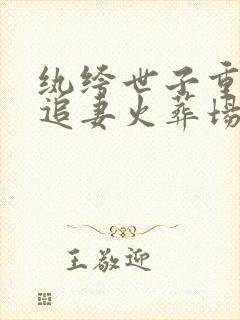 纨绔世子重
追妻火葬场
王敬迎